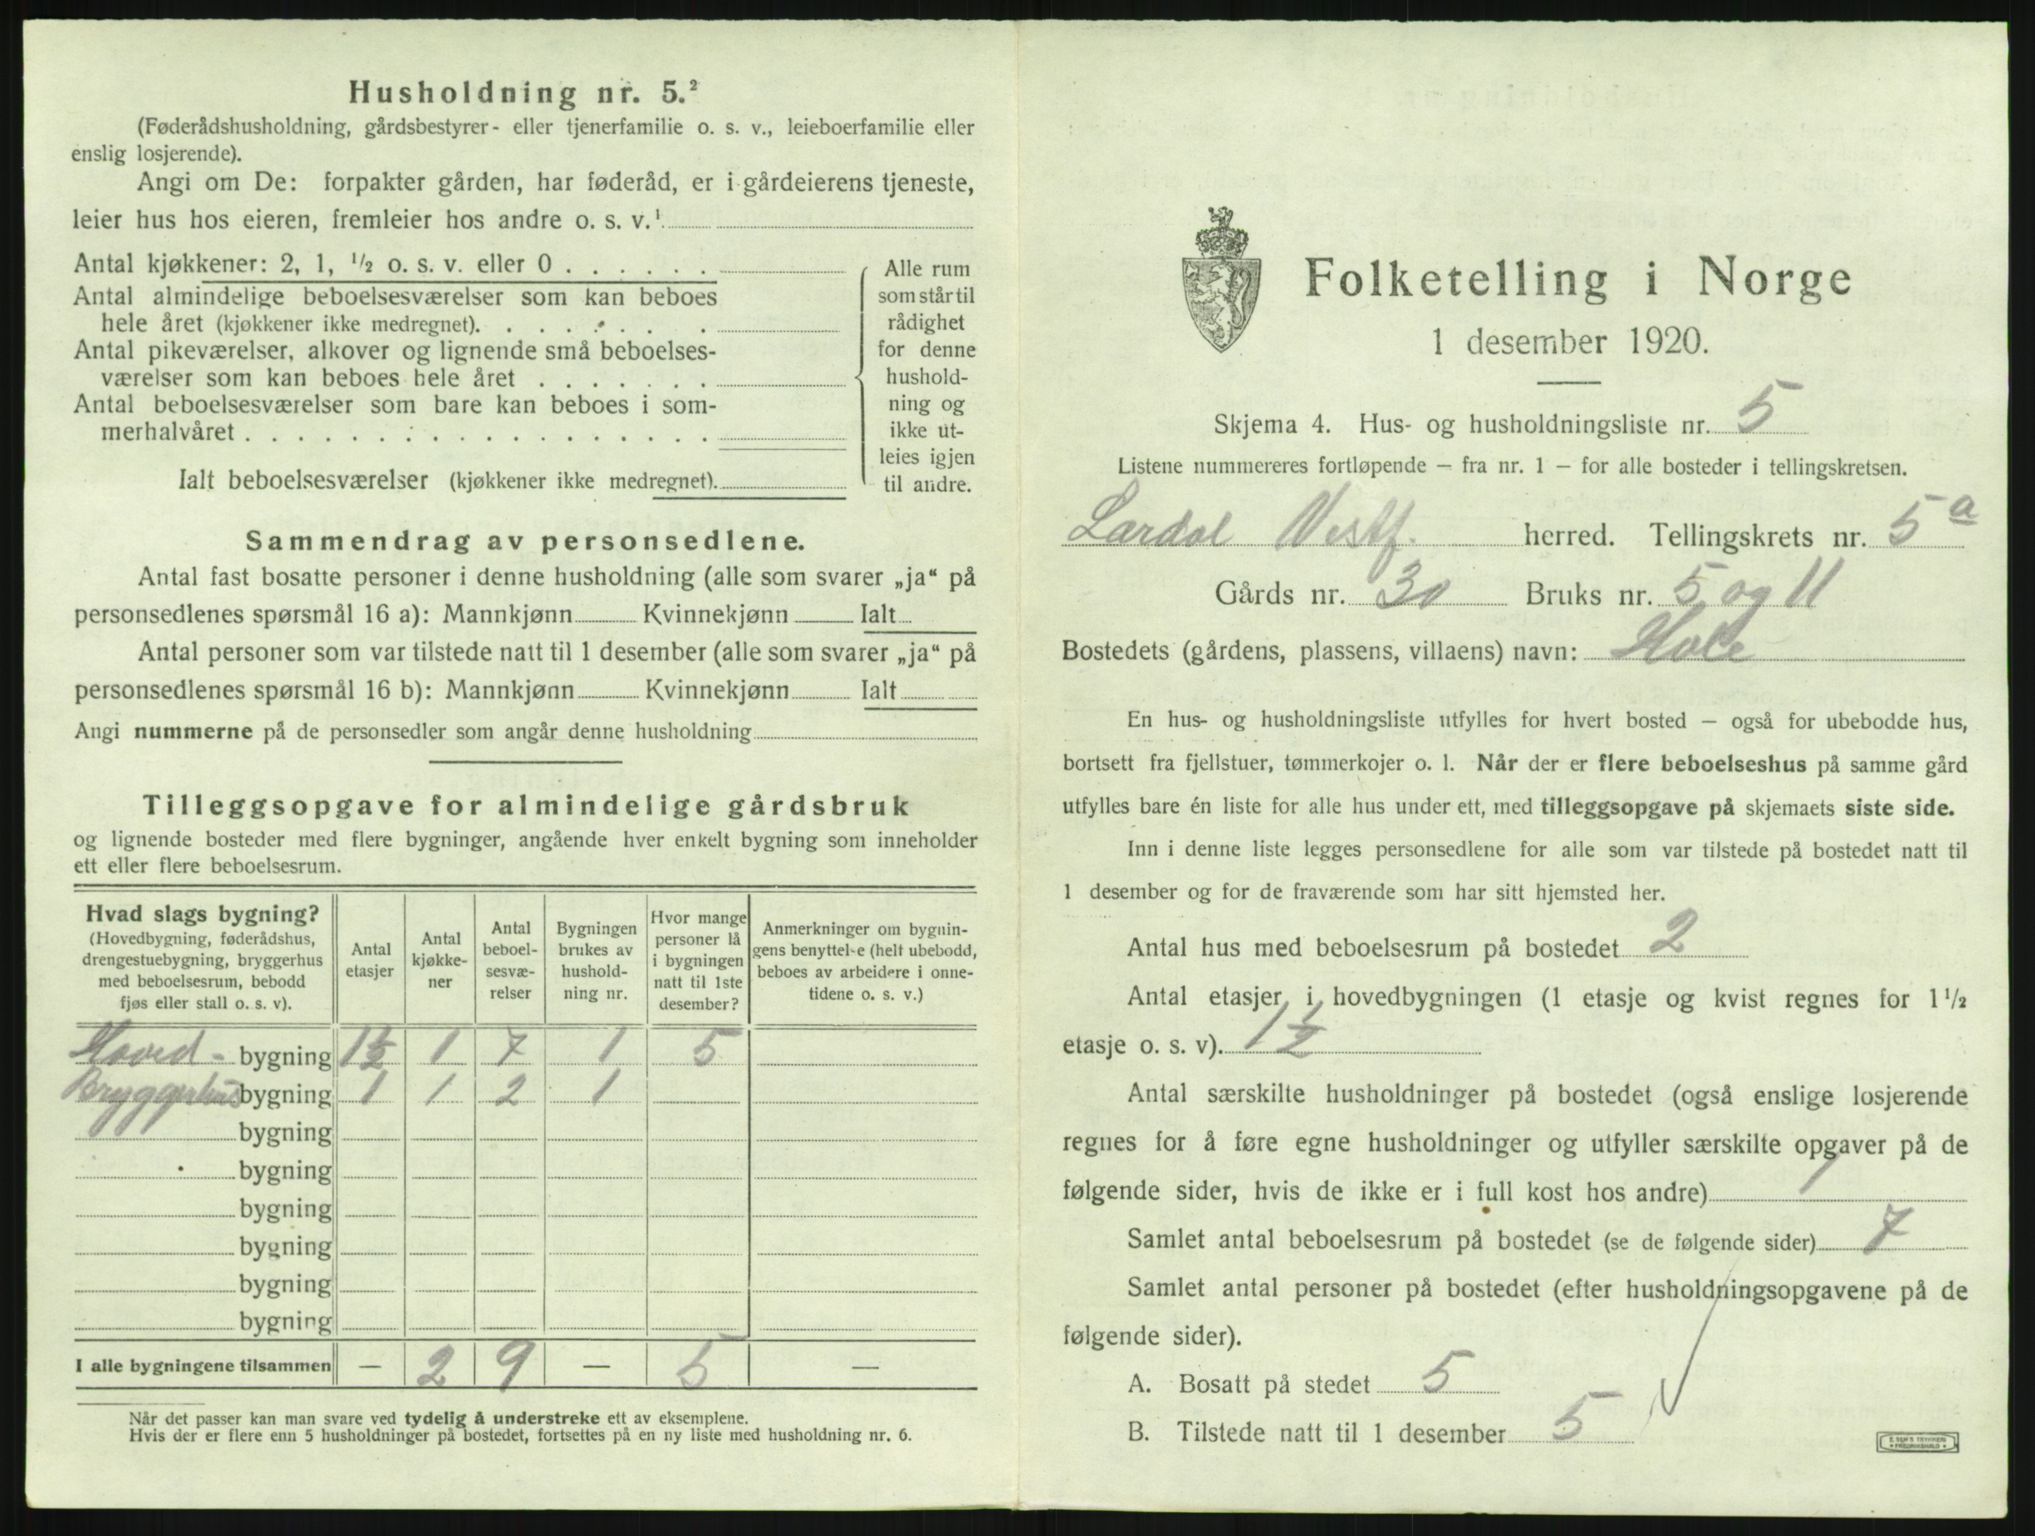 Husholdning nr. 5.²
(Føderådshusholdning, gårdsbestyrer- eller tjenerfamilie o. s. v., leieboerfamilie eller
enslig losjerende).
Angi om De: forpakter gården, har føderåd, er i gårdeierens tjeneste,
leier hus hos eieren, fremleier hos andre o. s. v.¹
Antal kjøkkener: 2, 1, ½ o. s. v. eller 0 . . . . . .
Antal almindelige beboelsesværelser som kan beboes
hele året (kjøkkener ikke medregnet). . . . . . . .
Antal pikeværelser, alkover og lignende små beboelses-
værelser som kan beboes hele året . . . . . . .
Antal beboelsesværelser som bare kan beboes i som-
merhalvåret . . . . . . . . . . . . . . . . . .
Ialt beboelsesværelser (kjøkkener ikke medregnet).
Alle rum
som står til
rådighet
for denne
hushold-
ning og
ikke ut-
leies igjen
til andre.
Sammendrag av personsedlene.
Antal fast bosatte personer i denne husholdning (alle som svarer „ja“ på
personsedlenes spørsmål 16 a): Mannkjønn Kvinnekjønn Ialt
Antal personer som var tilstede natt til 1 desember (alle som svarer „ja“ på
personsedlenes spørsmål 16 b): Mannkjønn Kvinnekjønn Ialt
Angi nummerne på de personsedler som angår denne husholdning
Tilleggsopgave for almindelige gårdsbruk
og lignende bosteder med flere bygninger, angående hver enkelt bygning som inneholder
ett eller flere beboelsesrum.
Hvad slags bygning?
(Hovedbygning, føderådshus,
drengestuebygning, bryggerhus
med beboelsesrum, bebodd
fjøs eller stall o. s. v).
Antal
etasjer
Antal
kjøkke-
ner
Antal
beboel-
sesvæ-
relser
Bygningen
brukes av
hushold-
ning nr.
Hvor mange
personer lå
i bygningen
natt til 1ste
desember?
Anmerkninger om bygnin-
gens benyttelse (helt ubebodd,
beboes av arbeidere i onne-
tidene o. s. v.)
Hoved- bygning 1½ 1 7 1 5
Bryggerhus bygning 1 1 2 1
bygning
bygning
bygning
bygning
bygning
bygning
I alle bygningene tilsammen — 2 9 — 5 —
Når det passer kan man svare ved tydelig å understreke ett av eksemplene.
Hvis der er flere enn 5 husholdninger på bostedet, fortsettes på en ny liste med husholdning nr. 6.
Folketelling i Norge
1 desember 1920.
Skjema 4. Hus- og husholdningsliste nr. 5
Listene nummereres fortløpende — fra nr. 1 — for alle bosteder i tellingskretsen.
Lardal Vestf. herred. Tellingskrets nr. 5a
Gårds nr. 30 Bruks nr. 5 og 11
Bostedets (gårdens, plassens, villaens) navn: Hole
En hus- og husholdningsliste utfylles for hvert bosted — også for ubebodde hus,
bortsett fra fjellstuer, tømmerkojer o. l. Når der er flere beboelseshus på samme gård
utfylles bare én liste for alle hus under ett, med tilleggsopgave på skjemaets siste side.
Inn i denne liste legges personsedlene for alle som var tilstede på bostedet natt til
1 desember og for de fraværende som har sitt hjemsted her.
Antal hus med beboelsesrum på bostedet 2
Antal etasjer i hovedbygningen (1 etasje og kvist regnes for 1½
etasje o. s. v). 1½
Antal særskilte husholdninger på bostedet (også enslige losjerende
regnes for å føre egne husholdninger og utfyller særskilte opgaver på de
følgende sider, hvis de ikke er i full kost hos andre) 1
Samlet antal beboelsesrum på bostedet (se de følgende sider) 7
Samlet antal personer på bostedet (efter husholdningsopgavene på de
følgende sider).
A. Bosatt på stedet 5
B. Tilstede natt til 1 desember 5